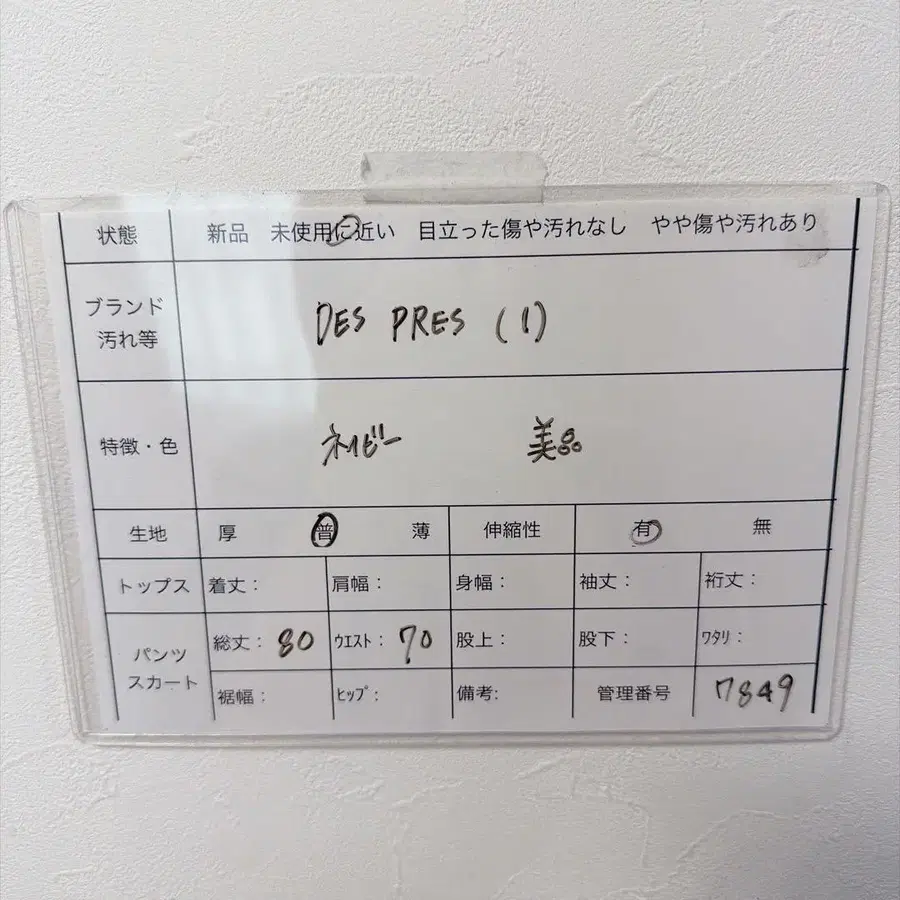 状態 新品 未使用に近い 目立った傷や汚れなし やや傷や汚れあり
ブランド
汚れ等 DES PRES (1)
特徴・色 ネイビー 美品
生地 厚 普 薄 伸縮性 有 無
トップス 着丈: 肩幅: 身幅: 袖丈: 裄丈:
パンツ
スカート 総丈: 80 ウエスト: 70 股上: 股下: ワタリ:
裾幅: ヒップ: 備考: 管理番号 7849